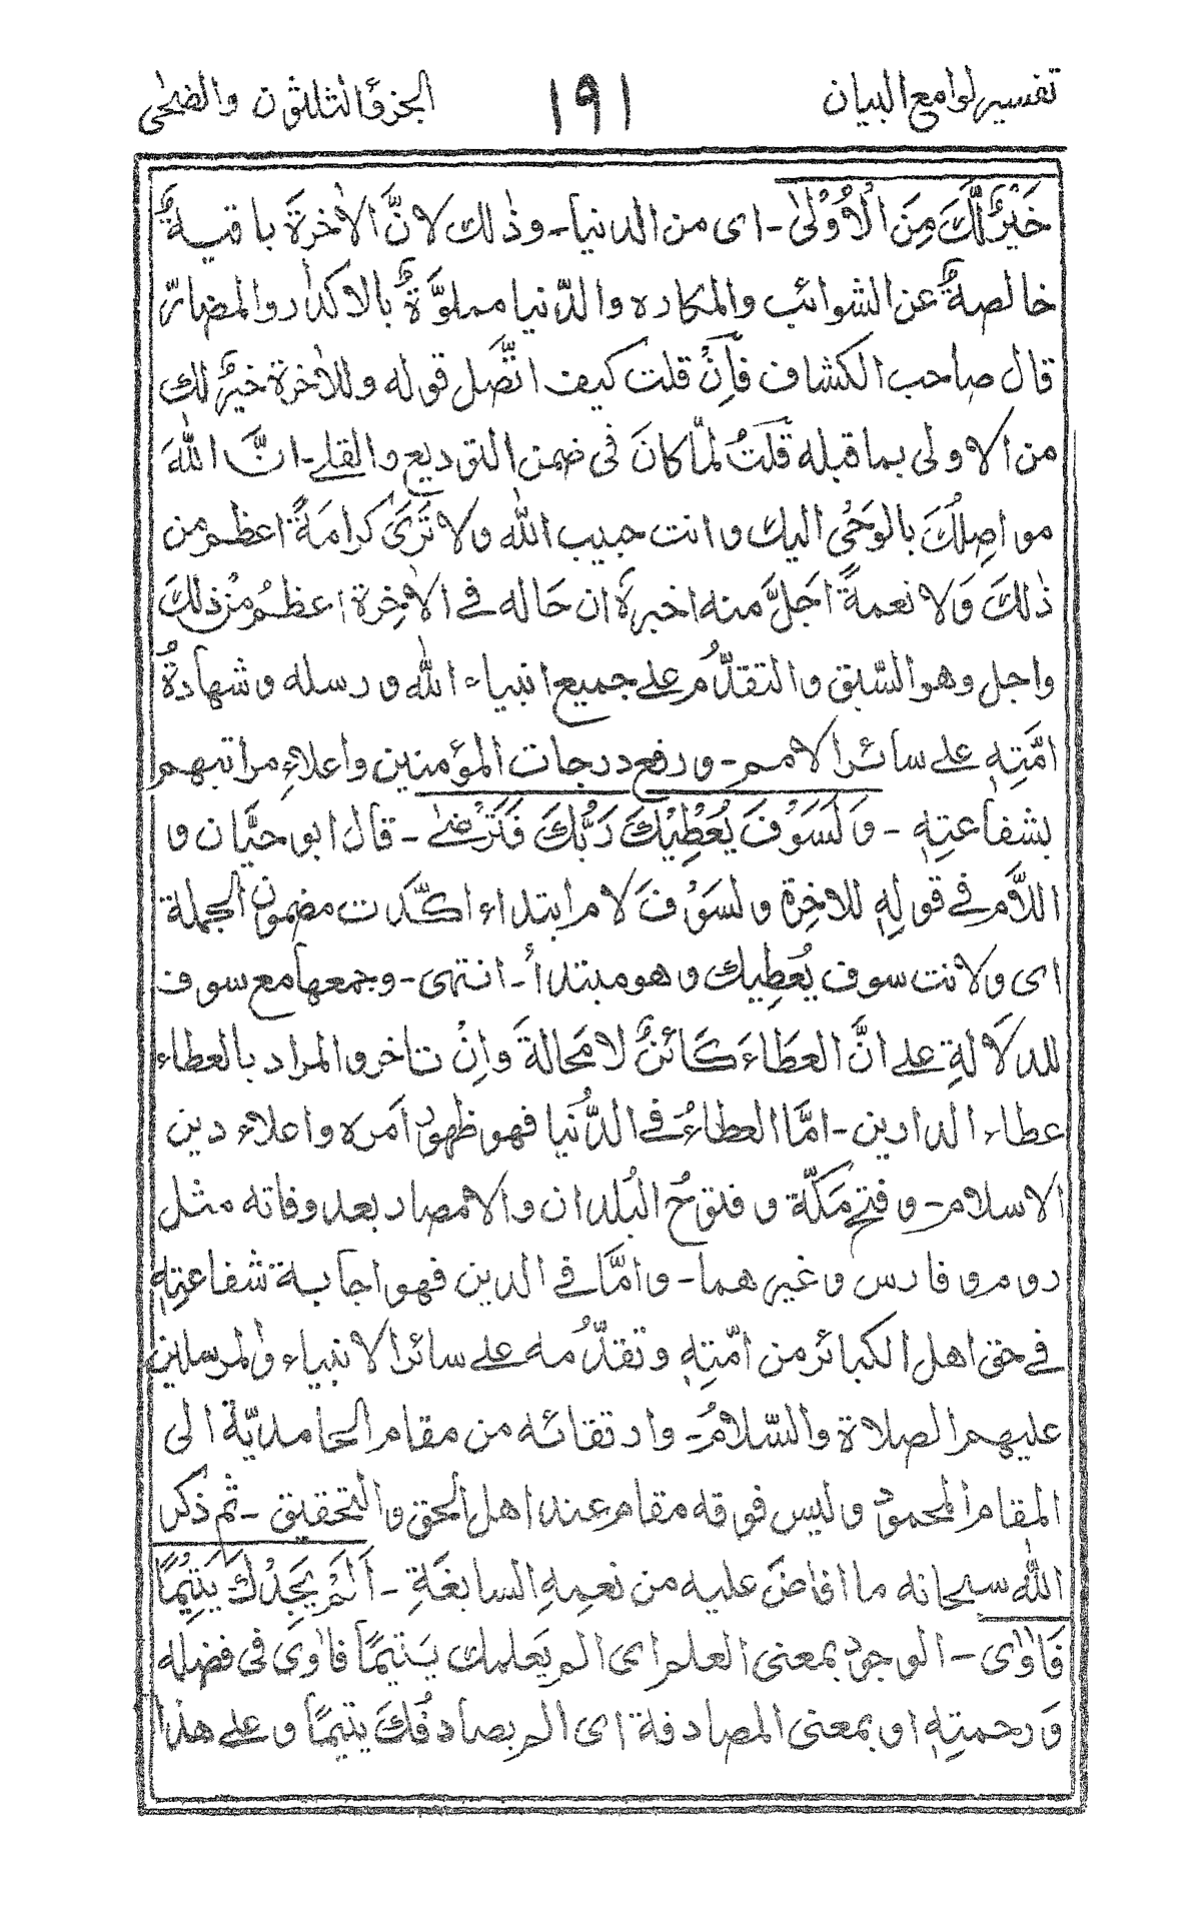 تفسير لوامع البيان ١٩١ الجزؤ الثلثون والضحى
خَيْرٌ لَّكَ مِنَ الْاُوْلىٰ - اى من الدنيا - وذٰلك لانَّ الاٰخرةَ باقيةٌ
خالصةٌ عن الشوائب والمكاره والدّنيا مملوّةٌ بالاكدار والمضارّ
قال صاحب الكشاف فَاِنْ قلت كيف اتّصل قوله وللاٰخرة خيرٌ لك
من الاولى بما قبله قلتُ لمّا كانَ فى ضمن التوديع والقلے - انَّ اللّٰهَ
مواصِلُكَ بالوَحْىِ اليك وانت حبيب اللّٰه ولا تَرىٰ كرامَةً اعظم من
ذٰلكَ وَلا نعمةً اَجَلَّ منه اخبرهٗ ان حَاله فے الاٰخِرة اعظمُ مِنْ ذٰلكَ
واجل وهو السّبق والتقدُّم علے جميع انبياء اللّٰه ورسله وشهادةُ
امَّتِهٖ علے سائر الامم - ورفع درجات المؤمنين واعلاءِ مراتبهم
بشفاعتِهٖ - وَلَسَوْفَ يُعْطِيْكَ رَبُّكَ فَتَرْضٰے - قال ابو حيَّان و
اللّام فے قولِهٖ للاٰخِرة ولسَوْفَ لام ابتداء اكّدت مضمون الجملة
اى ولانت سوف يُعطِيك وهو مبتدأ - انتهى - وجمعها مع سوف
للدلَالةِ علے انَّ العطَاءَ كَائنٌ لا محالةَ وَاِنْ تاخر والمراد بالعطاء
عطاء الدارين - امَّا العطاءُ فے الدُّنيا فهو ظهورُ اَمره واعلاء دين
الاسلام - و فتح مَكّة و فتوحُ البُلدان والامصار بعد وفاته مثل
روم و فارس و غير هما - و امَّا فے الدين فهو اجابة شفاعتِهٖ
فے حق اهل الكبائر من امّتِهٖ وتقدُّمه علے سائر الانبياء والمرسلين
عليهم الصلاة والسّلامُ - وارتقائه من مقام الحامديّة الى
المقام المحمود وليس فوقه مقام عند اهل الحق والتحقيق - ثم ذكر
اللّٰه سبحانه ما افاضَ عليه من نعمِهِ السابغَةِ - اَلَمْ يَجِدْكَ يَتِيْمًا
فَاٰوٰى - الوجود بمعنى العلم اى الم يَعلمك يَتيمًا فاٰوى فى فضله
وَرحمتِهٖ او بمعنى المصادفة اى الم يصادفُكَ يتيمًا و علے هذا